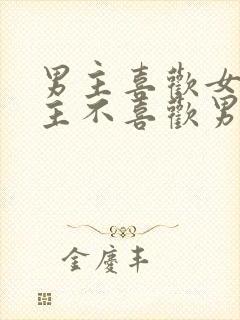 男主喜歡女
主不喜歡男
金慶丰